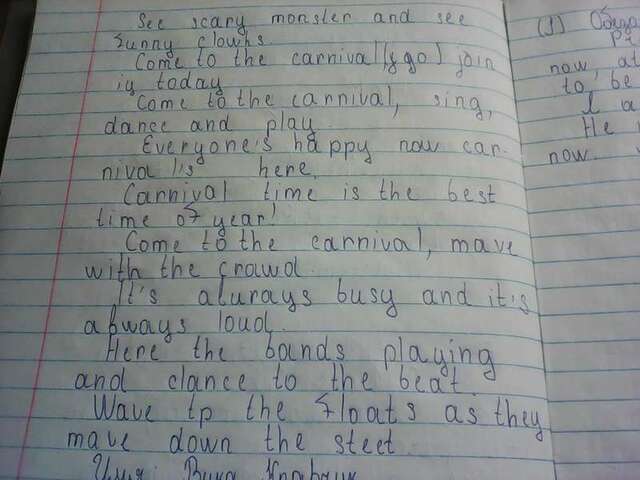 See scary monster and see
funny clowns.
Come to the carnival
in today
Come to the carnival, sing,
dance and play
Everyone's happy now car-
nival's here.
Carnival time is the best
time of year!
Come to the carnival, mave
with the crawd.
It's always busy and it's
always loud.
Here the bands playing
and clance to the beat.
Wave tp the floats as they
mave down the steet.
(1)
now, at
to be
I a
He
now.